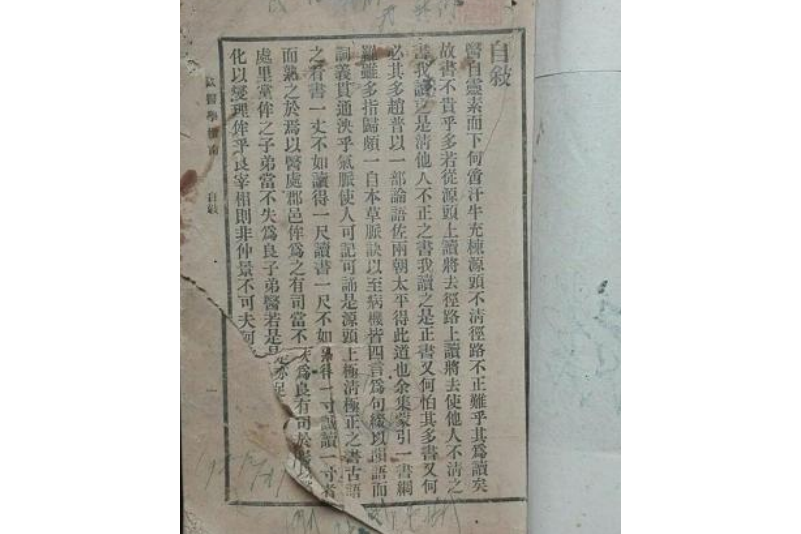 自敍
醫自靈素而下何啻汗牛充棟源頭不淸徑路不正難乎其爲讀矣
故書不貴乎多若從源頭上讀將去徑路上讀將去使他人不淸之
書我讀之是淸他人不正之書我讀之是正書又何怕其多書又何
必其多趙普以一部論語佐兩朝太平得此道也余集蒙引一書綱
羅雖多指歸頗一自本草脈訣以至病機皆四言爲句綴以韻語而
詞義貫通泱乎氣脈使人可記可誦是源頭上極淸極正之書古語
之看書一丈不如讀得一尺讀書一尺不如熟得一寸誠讀一寸者
而熟之於焉以醫處郡邑俾爲之有司當不失爲良有司於醫以
處里黨俾之子弟當不失爲良子弟醫若是是亦足
化以燮理俾乎良宰相則非仲景不可夫
醫學指南
自敍
一